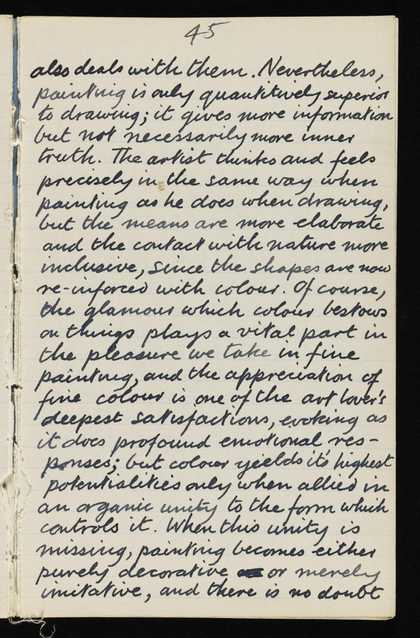 45
also deals with them. Nevertheless,
painting is only quantitively superior
to drawing; it gives more information
but not necessarily more inner
truth. The artist thinks and feels
precisely in the same way when
painting as he does when drawing,
but the means are more elaborate
and the contact with nature more
inclusive, since the shapes are now
re-inforced with colour. Of course,
the glamour which colour bestows
on things plays a vital part in
the pleasure we take in fine
painting, and the appreciation of
fine colour is one of the art lover's
deepest satisfactions, evoking as
it does profound emotional res-
ponses; but colour yields it's highest
potentialities only when allied in
an organic unity to the form which
controls it. When this unity is
missing, painting becomes either
purely decorative or merely
imitative, and there is no doubt